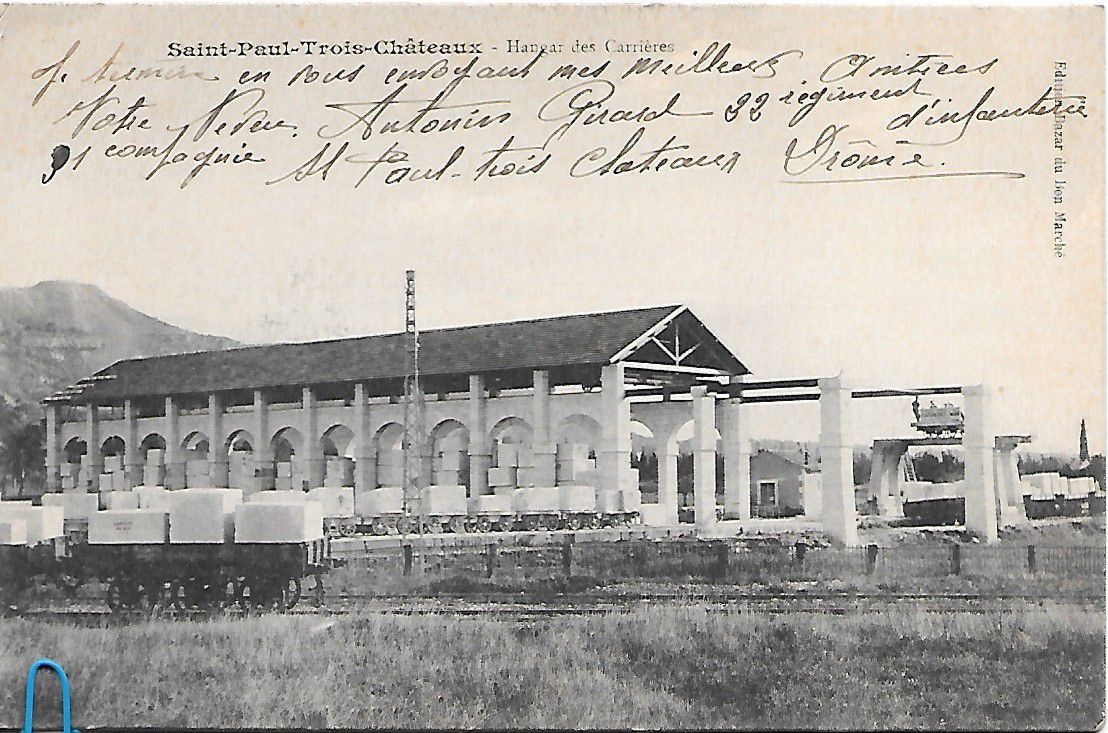 Saint-Paul-Trois-Châteaux - Hangar des Carrières
Je termine en vous envoyant mes meilleurs Amitiees
Votre Neveu. Antonin Girard 22 régiment d'infanterie
compagnie St Paul-trois Chateaux Drôme.
Bazar du Bon Marché